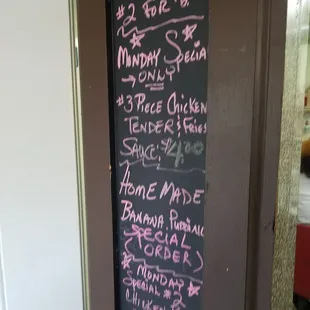 #2 FOR $
MONDAY SPECIAL
→ ONLY
#3 PIECE CHICKEN
TENDER & FRIES
SAUCE. $4.00
HOMEMADE
BANANA. PUDDING
SPECIAL
(ORDER)
MONDAY
SPECIAL # 2
CHICKEN